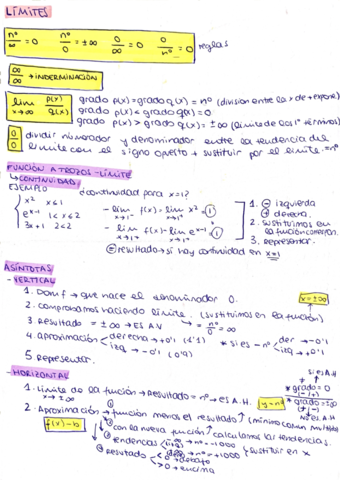 LÍMITES
nº/∞ = 0 nº/0 = ±∞ 0/∞ = 0 0/nº = 0 reglas
∞/∞ → INDERMINACIÓN
lim x→∞ p(x)/q(x) grado p(x) = grado q(x) = nº (division entre la x de + expone)
grado p(x) < grado q(x) = 0
grado p(x) > grado q(x) = ±∞ (límite de los 1º términos)
0/0 dividir numerador y denominador entre la tendencia del
límite con el signo opuesto + sustituir por el límite = nº
FUNCIÓN A TROZOS - LÍMITE
↳ CONTINUIDAD
EJEMPLO ¿continuidad para x=1?
x² x≤1
e^(x-1) 1<x≤2
3x+1 2<2
- lim x→1⁻ f(x) = lim x→1⁻ x² = 1
- lim x→1⁺ f(x) = lim x→1⁺ e^(x-1) = 1
= resultado → si hay continuidad en x=1
1. ⊖ izquierda
⊕ derecha
2. sustituimos en
la función
3. Representar
ASÍNTOTAS
- VERTICAL
1. Dom f → que hace el denominador 0. x = ±∞
2. comprobamos haciendo límite. (sustituimos en la función)
3. Resultado = ±∞ → ES A.V ↳ nº/0 = ∞
4. Aproximación derecha → +0'1 (1'1) * si es - nº der → -0'1
izq → -0'1 (0'9) izq → +0'1
5. Representar.
- HORIZONTAL
1. Límite de la función → Resultado = nº → es A.H. y = nº
x → ±∞
si es A.H
* grado = 0
* grado = ±∞
No es A.H
2. Aproximación → función menos el resultado (mínimo común múltiplo)
f(x) - b
con la nueva función calculamos las tendencias.
tendencias -∞ → nº → -1000
+∞ → nº → +1000 y sustituir en x
resultado < 0 → debajo
> 0 → encima